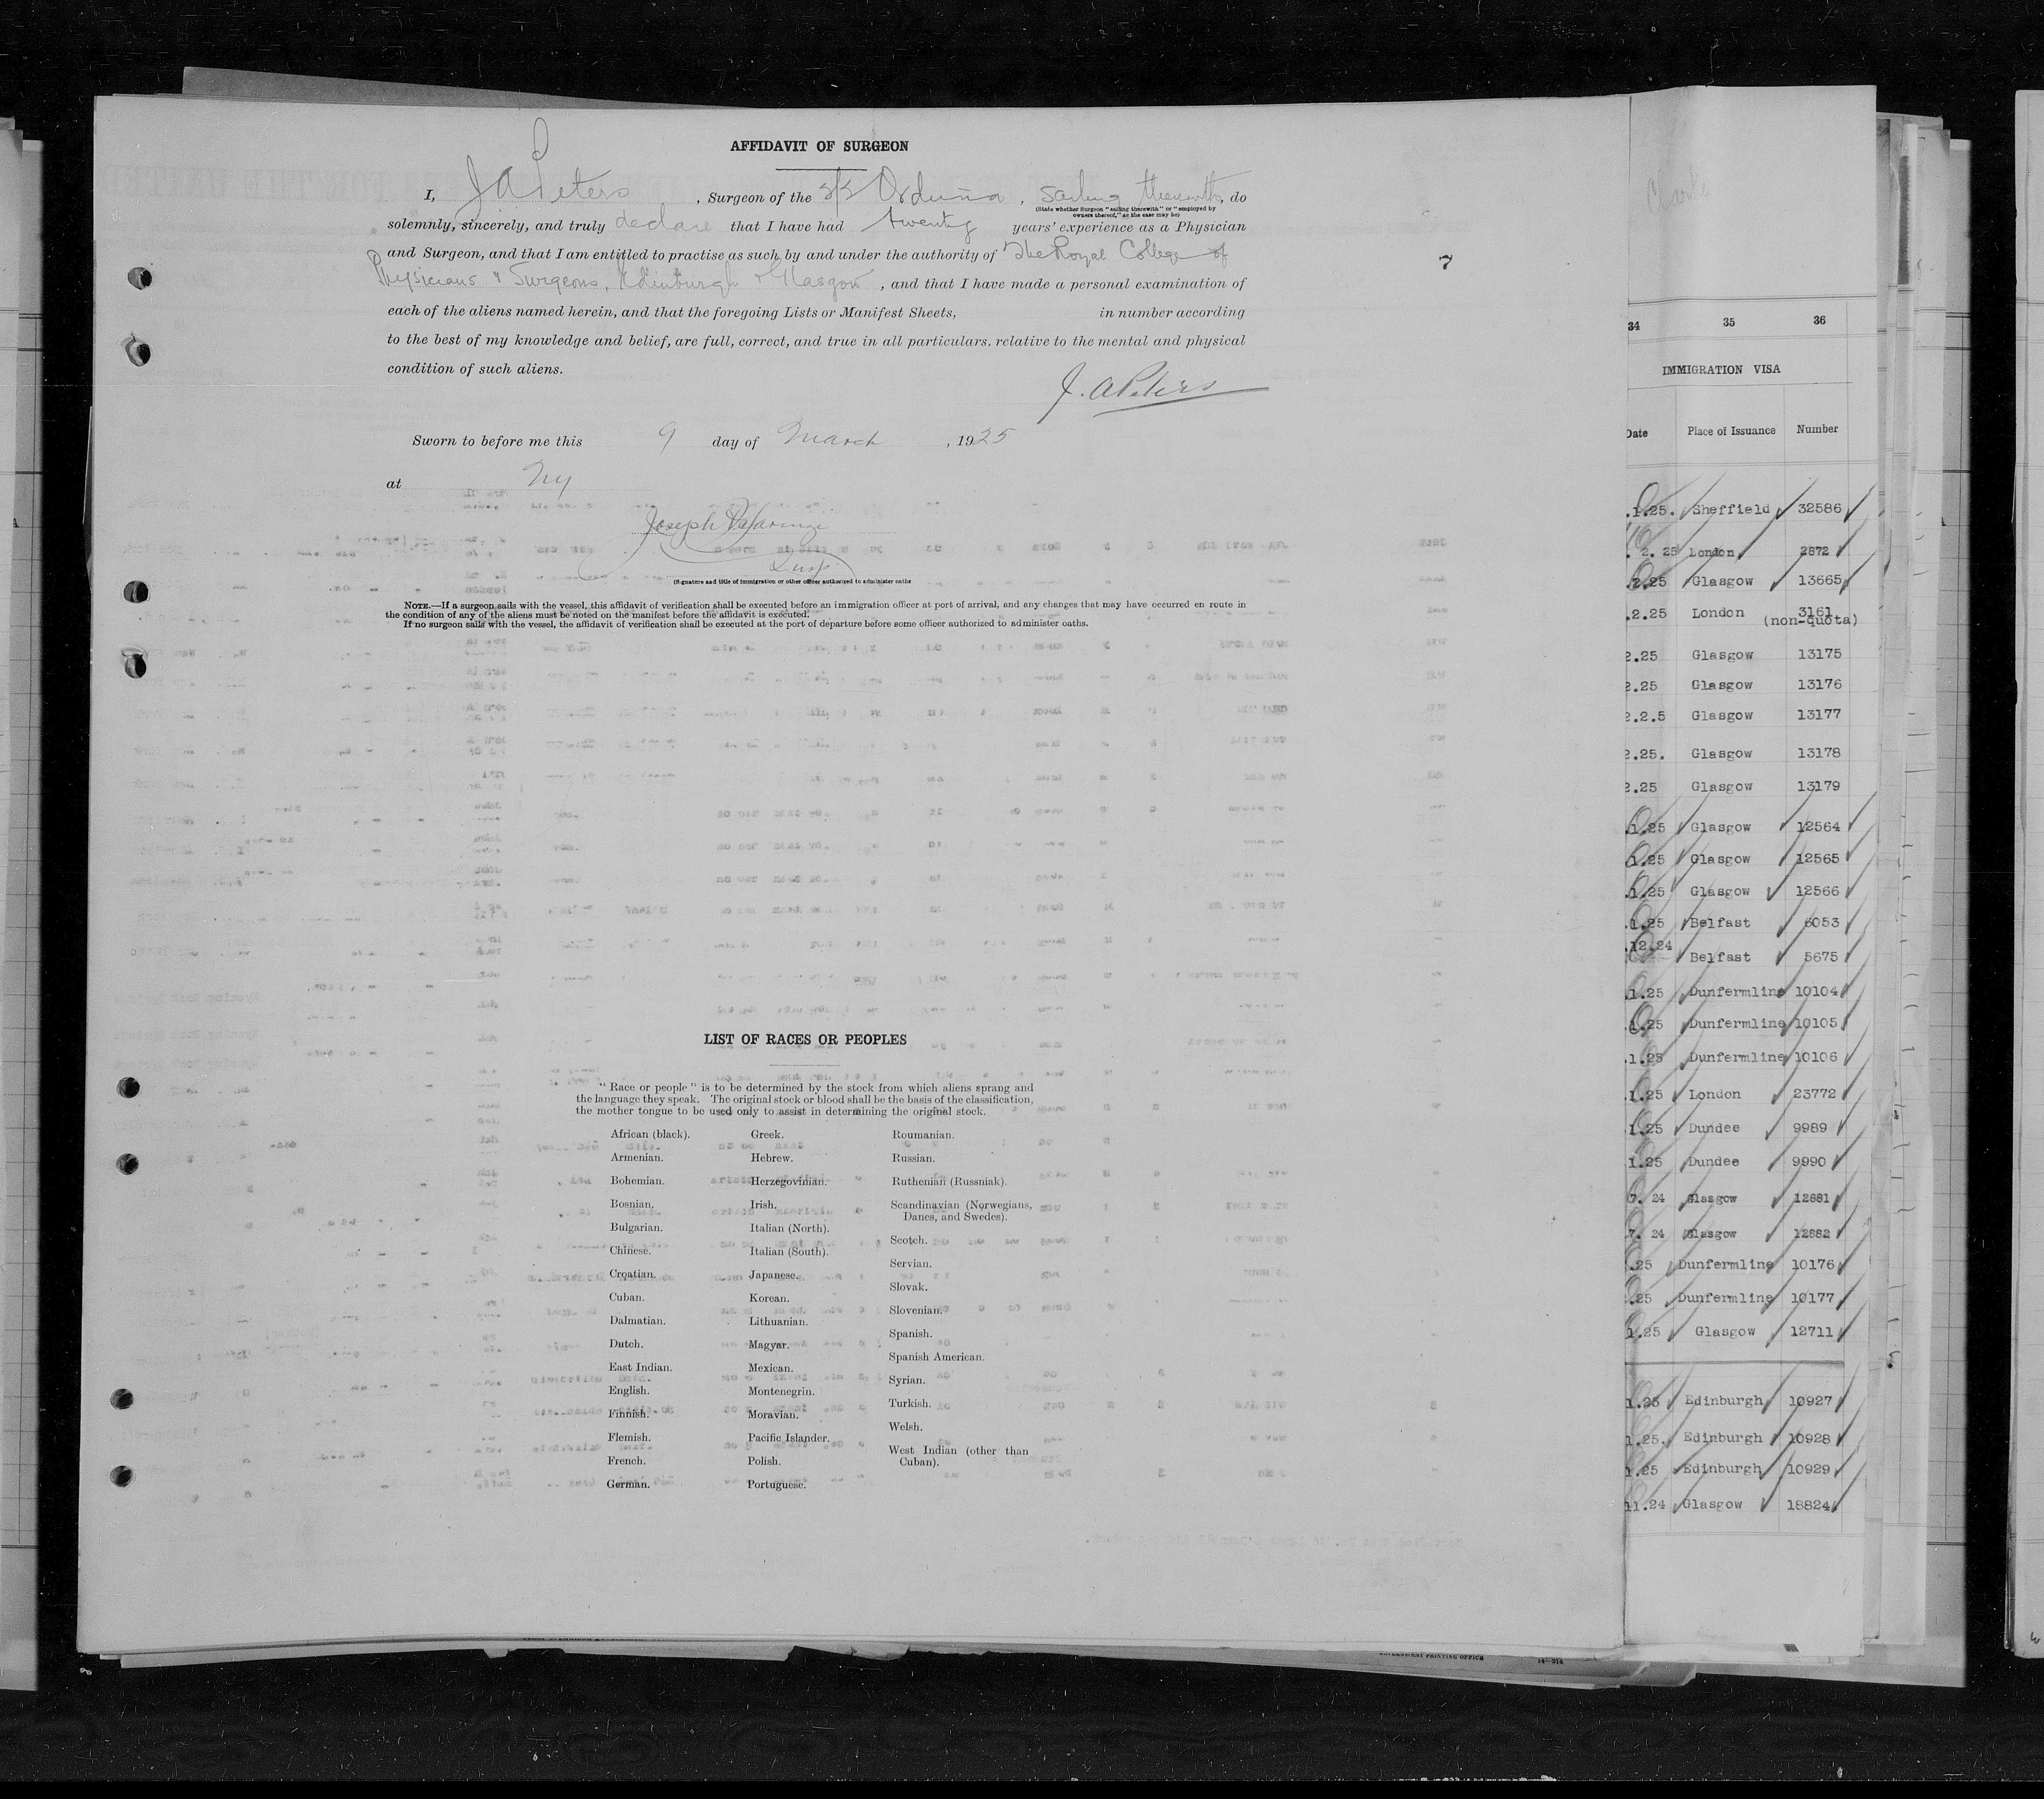 AFFIDAVIT OF SURGEON
I, J A Peters, Surgeon of the S/S Orduña, sailing therewith, do
(State whether Surgeon "sailing therewith" or "employed by
owners thereof," as the case may be)
solemnly, sincerely, and truly declare that I have had twenty years' experience as a Physician
and Surgeon, and that I am entitled to practise as such by and under the authority of The Royal College of
Physicians & Surgeons, Edinburgh & Glasgow, and that I have made a personal examination of
each of the aliens named herein, and that the foregoing Lists or Manifest Sheets, in number according
to the best of my knowledge and belief, are full, correct, and true in all particulars, relative to the mental and physical
condition of such aliens.
J. A Peters
Sworn to before me this 9 day of March, 1925
at NY
Joseph
Insp
(Signature and title of immigration or other officer authorized to administer oaths
NOTE.—If a surgeon sails with the vessel, this affidavit of verification shall be executed before an immigration officer at port of arrival, and any changes that may have occurred en route in
the condition of any of the aliens must be noted on the manifest before the affidavit is executed.
If no surgeon sails with the vessel, the affidavit of verification shall be executed at the port of departure before some officer authorized to administer oaths.
LIST OF RACES OR PEOPLES
"Race or people" is to be determined by the stock from which aliens sprang and
the language they speak. The original stock or blood shall be the basis of the classification,
the mother tongue to be used only to assist in determining the original stock.
African (black).
Armenian.
Bohemian.
Bosnian.
Bulgarian.
Chinese.
Croatian.
Cuban.
Dalmatian.
Dutch.
East Indian.
English.
Finnish.
Flemish.
French.
German.
Greek.
Hebrew.
Herzegovinian.
Irish.
Italian (North).
Italian (South).
Japanese.
Korean.
Lithuanian.
Magyar.
Mexican.
Montenegrin.
Moravian.
Pacific Islander.
Polish.
Portuguese.
Roumanian.
Russian.
Ruthenian (Russniak).
Scandinavian (Norwegians,
Danes, and Swedes).
Scotch.
Servian.
Slovak.
Slovenian.
Spanish.
Spanish American.
Syrian.
Turkish.
Welsh.
West Indian (other than
Cuban).
7
Clarke
34 35 36
IMMIGRATION VISA
Date Place of Issuance Number
.1.25. Sheffield 32586
. 2. 25 London 2872
.2.25 Glasgow 13665
.2.25 London 3161
(non-quota)
2.25 Glasgow 13175
2.25 Glasgow 13176
2.2.5 Glasgow 13177
2.25. Glasgow 13178
2.25 Glasgow 13179
.1.25 Glasgow 12564
.1.25 Glasgow 12565
.1.25 Glasgow 12566
.1.25 Belfast 6053
.12.24 Belfast 5675
.1.25 Dunfermline 10104
.1.25 Dunfermline 10105
.1.25 Dunfermline 10106
.1.25 London 23772
.1.25 Dundee 9989
1.25 Dundee 9990
7. 24 Glasgow 12881
7. 24 Glasgow 12882
.25 Dunfermline 10176
.25 Dunfermline 10177
1.25 Glasgow 12711
1.25 Edinburgh 10927
1.25. Edinburgh 10928
1.25 Edinburgh 10929
11.24 Glasgow 18824
GOVERNMENT PRINTING OFFICE